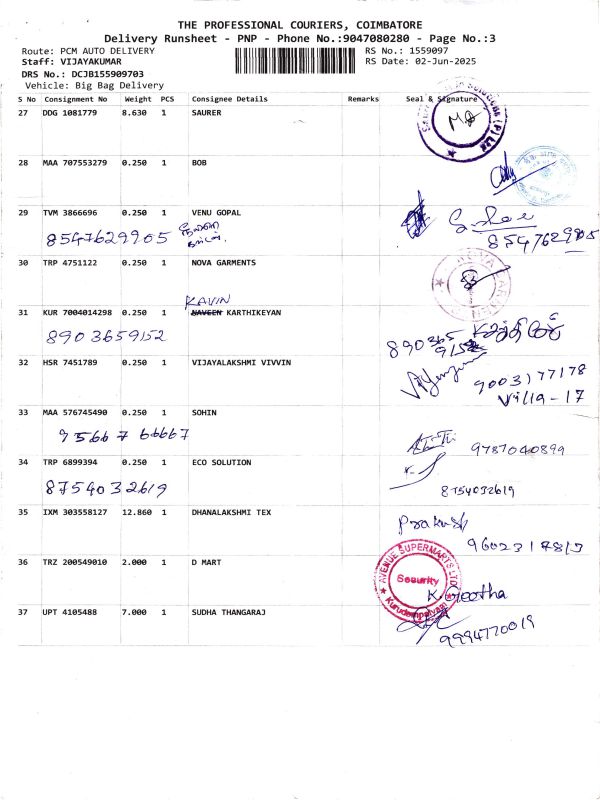 THE PROFESSIONAL COURIERS, COIMBATORE
Delivery Runsheet - PNP - Phone No.:9047080280 - Page No.:3
Route: PCM AUTO DELIVERY
RS No.: 1559097
Staff: VIJAYAKUMAR
RS Date: 02-Jun-2025
DRS No.: DCJB155909703
Vehicle: Big Bag Delivery
S No Consignment No Weight PCS Consignee Details Remarks Seal & Signature
27 DDG 1081779 8.630 1 SAURER
28 MAA 707553279 0.250 1 BOB
29 TVM 3866696 0.250 1 VENU GOPAL
8547629905
8547629905
30 TRP 4751122 0.250 1 NOVA GARMENTS
KAVIN
31 KUR 7004014298 0.250 1 NAVEEN KARTHIKEYAN
8903659152
890365
9152
32 HSR 7451789 0.250 1 VIJAYALAKSHMI VIVVIN
9003177178
Villa-17
33 MAA 576745490 0.250 1 SOHIN
9566766667
9787040899
34 TRP 6899394 0.250 1 ECO SOLUTION
8754032619
8754032619
35 IXM 303558127 12.860 1 DHANALAKSHMI TEX
Prakash
36 TRZ 200549010 2.000 1 D MART
AVENUE SUPERMARTS LTD
Security
Kurudampalayam
K. Geetha
37 UPT 4105488 7.000 1 SUDHA THANGARAJ
9994770019